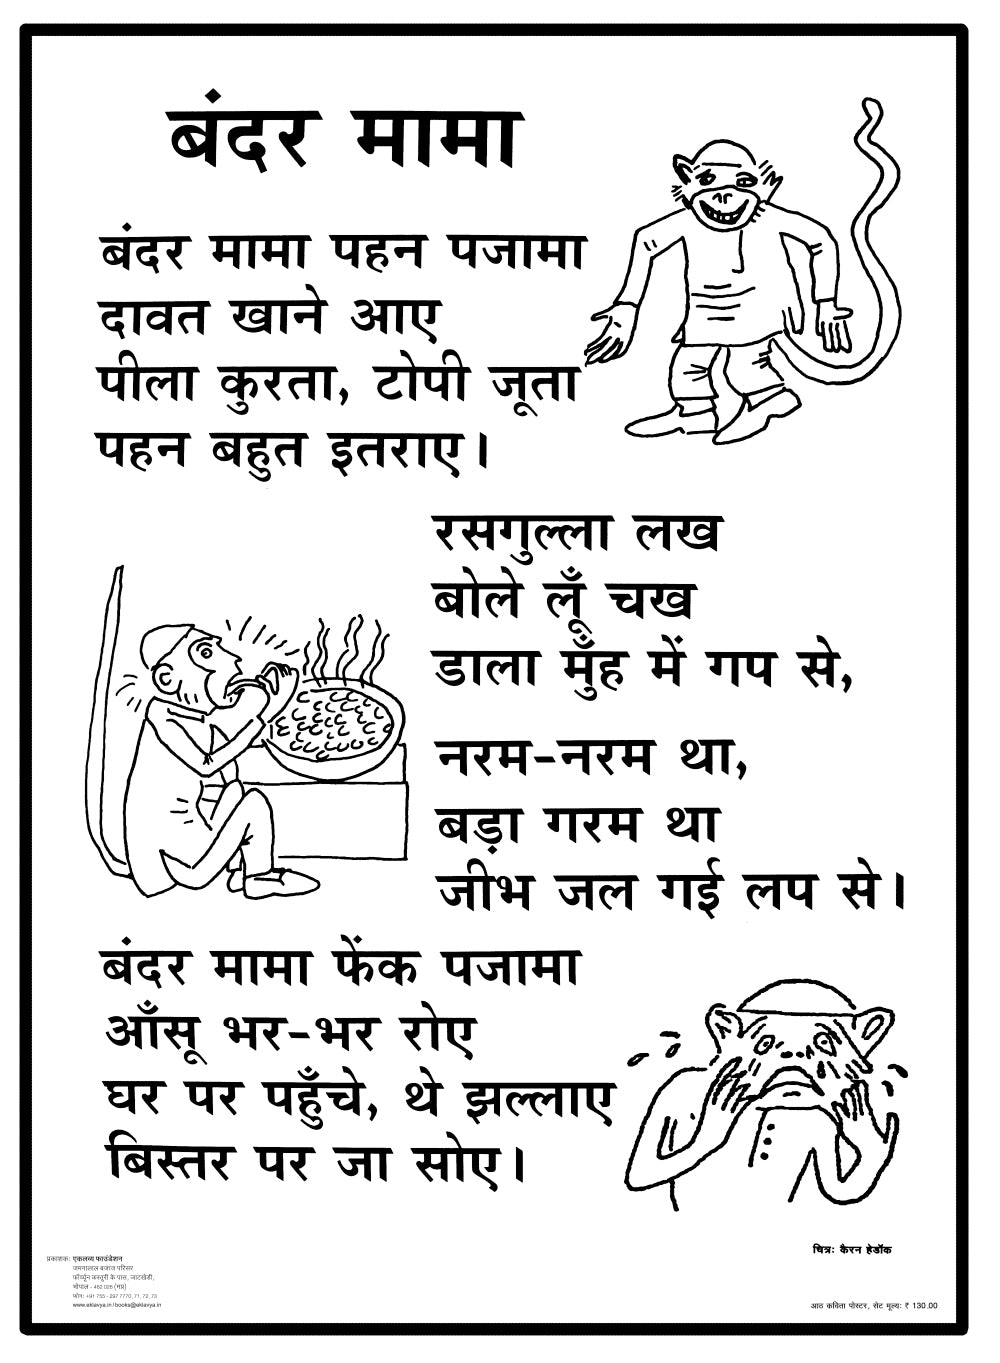 बंदर मामा
बंदर मामा पहन पजामा
दावत खाने आए
पीला कुरता, टोपी जूता
पहन बहुत इतराए।
रसगुल्ला लख
बोले लूँ चख
डाला मुँह में गप से,
नरम-नरम था,
बड़ा गरम था
जीभ जल गई लप से।
बंदर मामा फेंक पजामा
आँसू भर-भर रोए
घर पर पहुँचे, थे झल्लाए
बिस्तर पर जा सोए।
चित्र: कैरन हेडॉक
प्रकाशक: एकलव्य फाउंडेशन
जमनालाल बजाज परिसर
फॉर्च्यून कस्तूरी के पास, जाटखेड़ी,
भोपाल - 462 026 (मप्र)
फोन: +91 755 - 297 7770, 71, 72, 73
www.eklavya.in / books@eklavya.in
आठ कविता पोस्टर, सेट मूल्य: ₹ 130.00